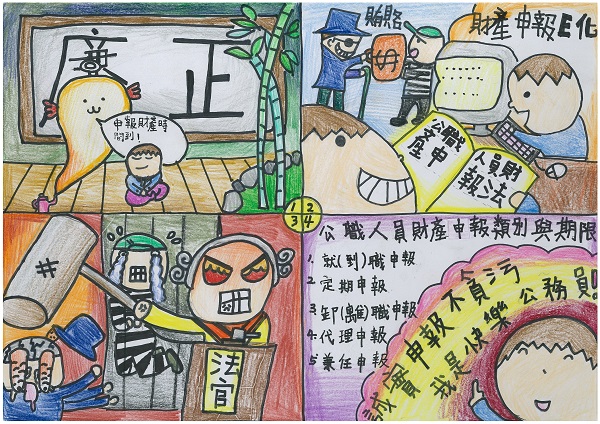 廉正
申報財產時
間到!
賄賂
財產申報E化
$
公職人員財
產申報法
1
2
3
4
法官
公職人員財產申報類別與期限
1. 就(到)職申報
2. 定期申報
3. 卸(離)職申報
4. 代理申報
5. 兼任申報
誠實申報不貪污
我是快樂公務員!